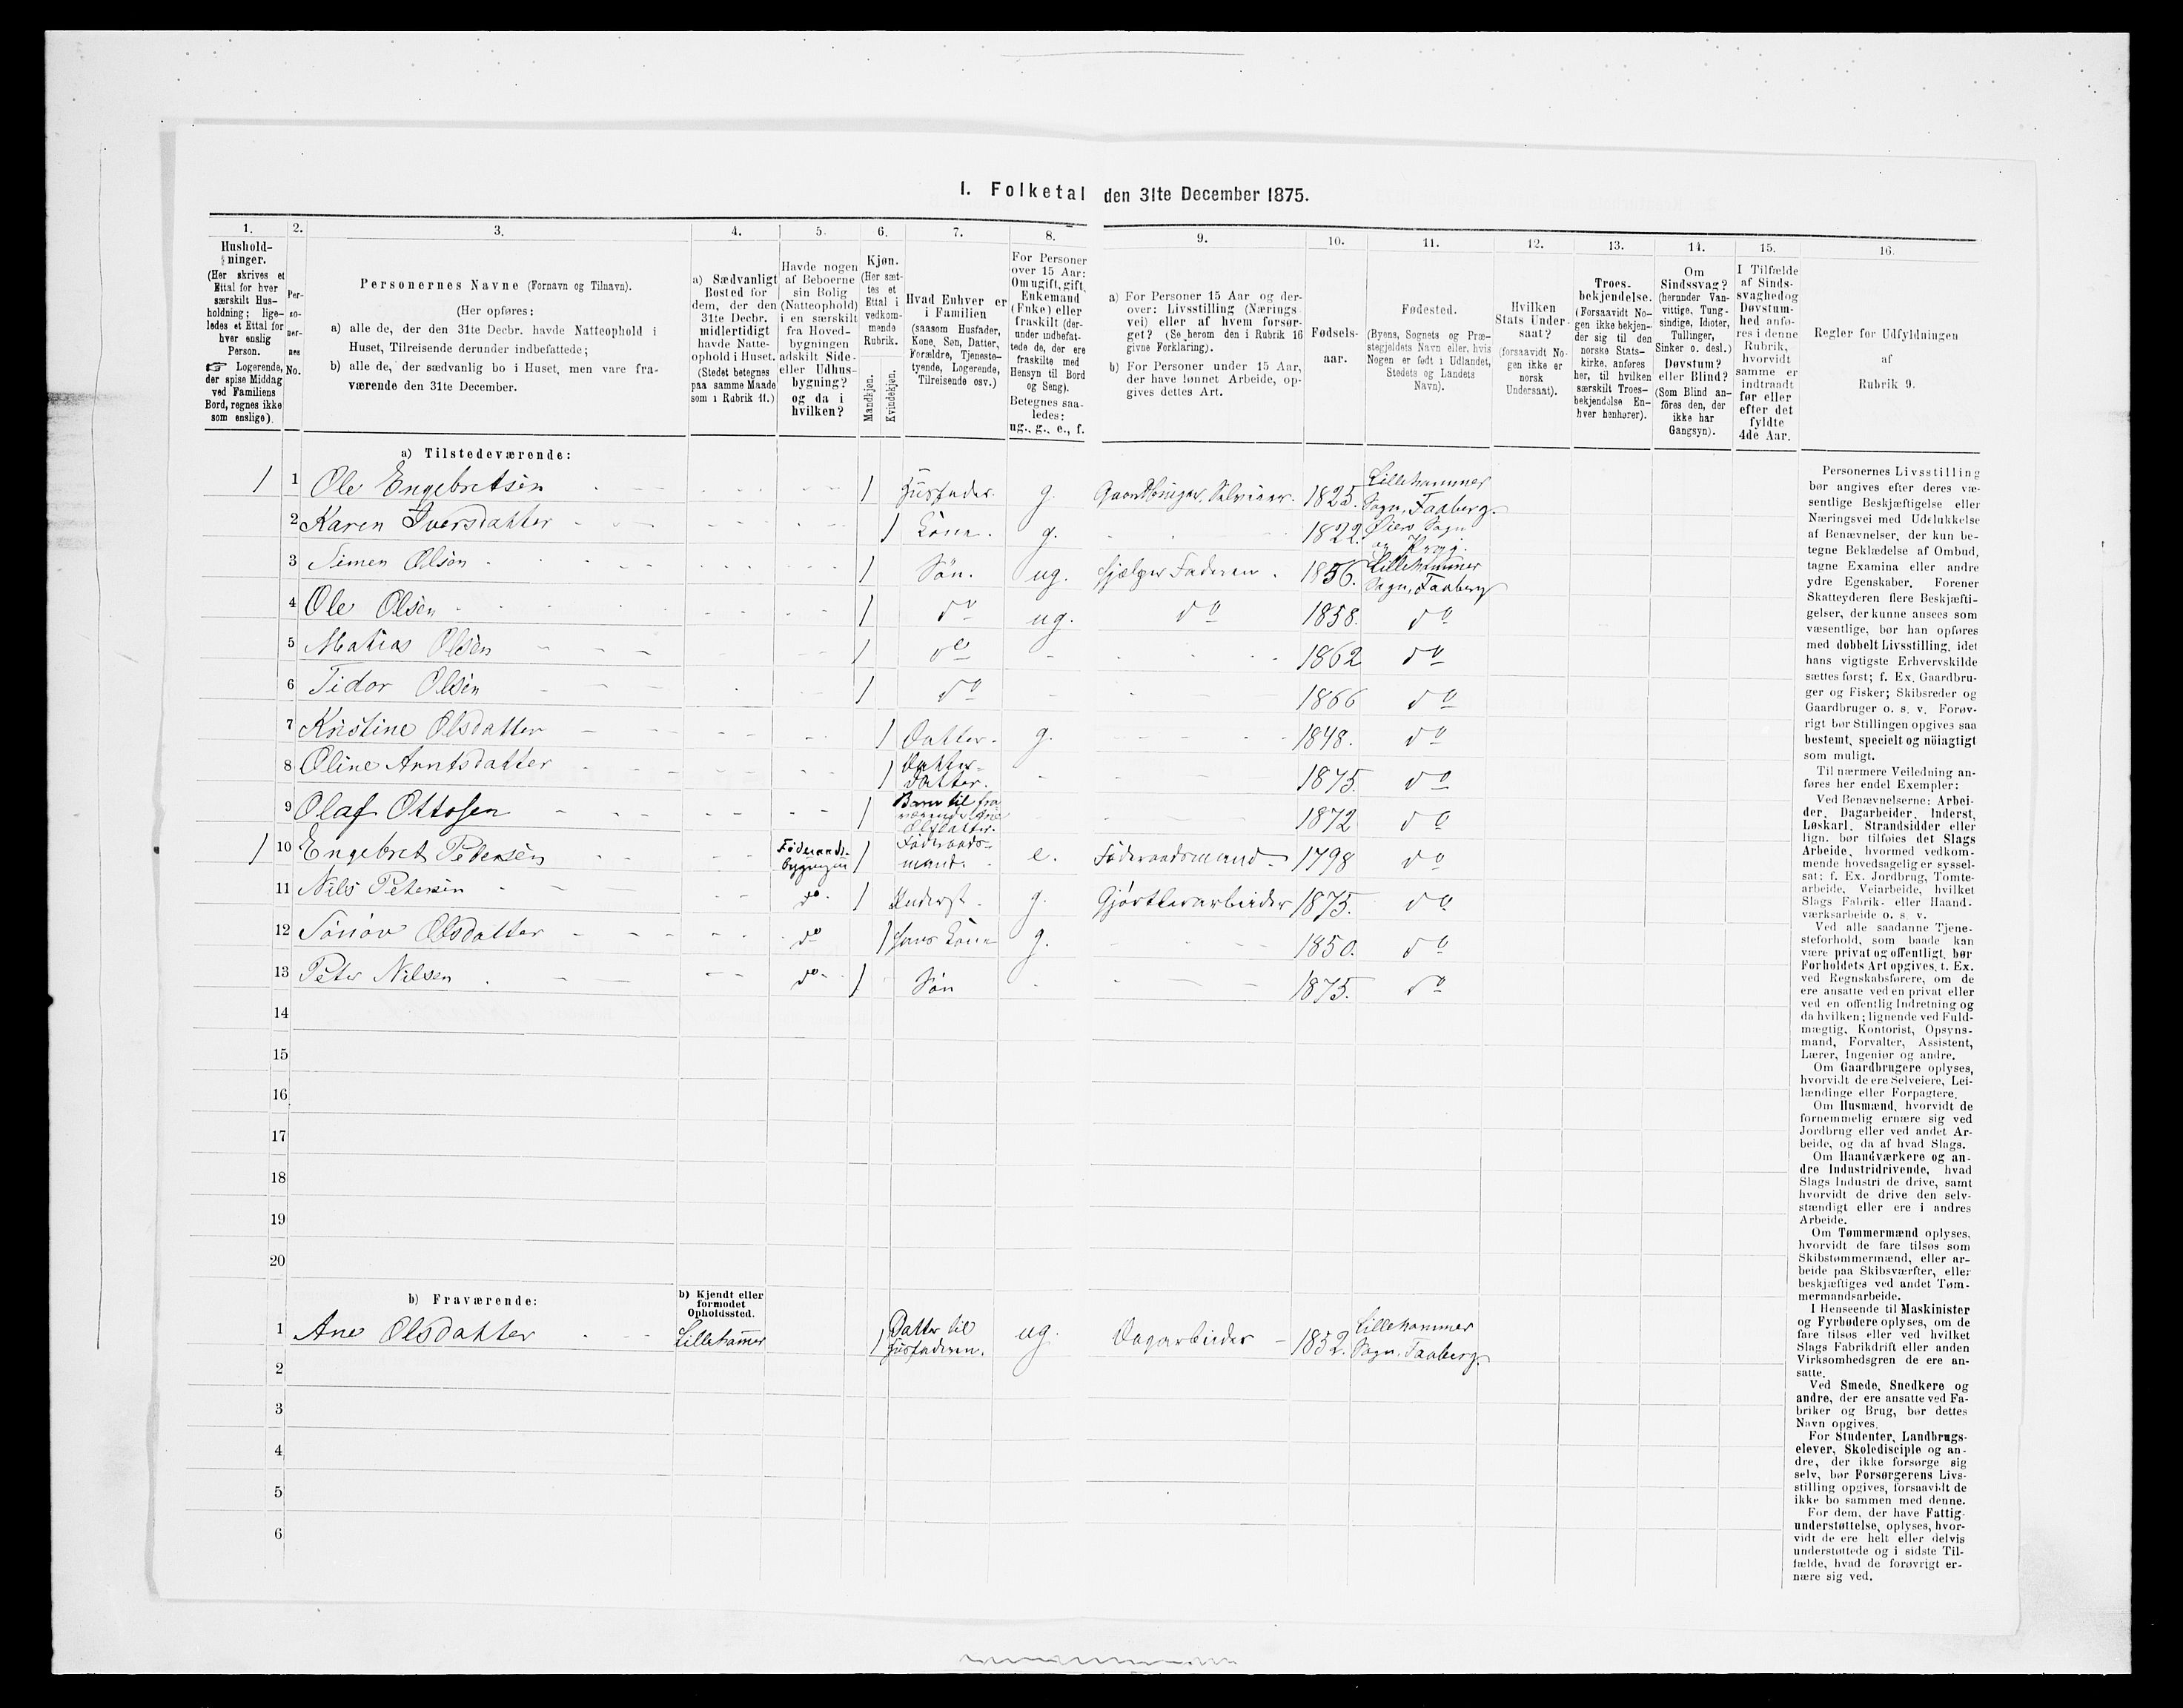 I. Folketal den 31te December 1875.
1. 2. 3. 4. 5. 6. 7. 8. 9. 10. 11. 12. 13. 14. 15. 16.
Hushold-
ninger.
(Her skrives et
Ettal for hver
særskilt Hus-
holdning; lige-
ledes et Ettal for
hver enslig
Person.
☞ Logerende,
der spise Middag
ved Familiens
Bord, regnes ikke
som enslige).
Per-
so-
ner-
nes
No.
Personernes Navne (Fornavn og Tilnavn).
(Her opføres:
a) alle de, der den 31te Decbr. havde Natteophold i
Huset, Tilreisende derunder indbefattede;
b) alle de, der sædvanlig bo i Huset, men vare fra-
værende den 31te December.
a) Sædvanligt
Bosted for
dem, der den
31te Decbr.
midlertidigt
havde Natte-
ophold i Huset.
(Stedet betegnes
paa samme Maade
som i Rubrik 11.)
Havde nogen
af Beboerne
sin Bolig
(Natteophold)
i en særskilt
fra Hoved-
bygningen
adskilt Side-
eller Udhus-
bygning?
og da i
hvilken?
Kjøn.
(Her sæt-
tes et
Ettal i
vedkom-
mende
Rubrik.
Mandkjøn.
Kvindekjøn.
Hvad Enhver er
i Familien
(saasom Husfader,
Kone, Søn, Datter,
Forældre, Tjeneste-
tyende, Logerende,
Tilreisende osv.)
For Personer
over 15 Aar:
Om ugift, gift,
Enkemand
(Enke) eller
fraskilt (der-
under indbefat-
tede de, der ere
fraskilte med
Hensyn til Bord
og Seng).
Betegnes saa-
ledes:
ug., g., e., f.
a) For Personer 15 Aar og der-
over: Livsstilling (Nærings-
vei) eller af hvem forsør-
get? (Se herom den i Rubrik 16
givne Forklaring).
b) For Personer under 15 Aar,
der have lønnet Arbeide, op-
gives dettes Art.
Fødsels-
aar.
Fødested.
(Byens, Sognets og Præ-
stegjeldets Navn eller, hvis
Nogen er født i Udlandet,
Stedets og Landets
Navn).
Hvilken
Stats Under-
saat?
(forsaavidt No-
gen ikke er
norsk
Undersaat).
Troes-
bekjendelse.
(Forsaavidt No-
gen ikke bekjen-
der sig til den
norske Stats-
kirke, anføres
her, til hvilken
særskilt Troes-
bekjendelse En-
hver henhører).
Om
Sindssvag?
(herunder Van-
vittige, Tung-
sindige, Idioter,
Tullinger,
Sinker o. desl.)
Døvstum?
eller Blind?
(Som Blind an-
föres den, der
ikke har
Gangsyn).
I Tilfælde
af Sinds-
svaghed og
Døvstum-
hed anfø-
res i denne
Rubrik,
hvorvidt
samme er
indtraadt
før eller
efter det
fyldte
4de Aar.
Regler for Udfyldningen
af
Rubrik 9.
a) Tilstedeværende:
1 1 Ole Engebretsen 1 Husfader. g. Gaardbruger, Selveier. 1825. Lillehammer
Sogn, Faaberg.
2 Karen Iversdatter 1 Kone. g. 1822. Øiers Sogn
og Prgj.
3 Simen Olsøn 1 Søn. ug. hjælper Faderen. 1856. Lillehammer
Sogn, Faaberg
4 Ole Olsen 1 do ug. do 1858. do
5 Matias Olsen 1 do 1862 do
6 Tidor Olsen 1 do 1866 do
7 Kristine Olsdatter 1 Datter. g. 1848. do
8 Oline Arntsdatter 1 Datter-
datter. 1875. do
9 Olaf Ottosen 1 Barn til fra
Olsdatter. 1872 do
1 10 Engebret Pedersen Føderaads-
bygningen 1 Føderaads-
mand. e. Føderaadsmand 1798 do
11 Nils Petersen do. 1 Inderst. g. Gjørtlerarbeider 1875. do
12 Sønøv Olsdatter do 1 hans Kone g. 1850. do
13 Peter Nilsen do 1 Søn 1875. do
14
15
16
17
18
19
20
b) Fraværende:
b) Kjendt eller
formodet
Opholdssted.
1 Ane Olsdatter Lillehamer 1 Datter til
Husfaderen. ug. Dagarbeider 1852. Lillehammer
Sogn. Faaberg.
2
3
4
5
6
Personernes Livsstilling
bør angives efter deres væ-
sentlige Beskjæftigelse eller
Næringsvei med Udelukkelse
af Benævnelser, der kun be-
tegne Beklædelse af Ombud,
tagne Examina eller andre
ydre Egenskaber. Forener
Skatteyderen flere Beskjæfti-
gelser, der kunne ansees som
væsentlige, bør han opføres
med dobbelt Livsstilling, idet
hans vigtigste Erhvervskilde
sættes først; f. Ex. Gaardbru-
ger og Fisker; Skibsreder og
Gaardbruger o. s. v. Forøv-
rigt bør Stillingen opgives saa
bestemt, specielt og nöiagtigt
som muligt.
Til nærmere Veiledning an-
føres her endel Exempler:
Ved Benævnelserne: Arbei-
der, Dagarbeider, Inderst,
Løskarl, Strandsidder eller
lign. bør tilføies det Slags
Arbeide, hvormed vedkom-
mende hovedsagelig er syssel-
sat; f. Ex. Jordbrug, Tomte-
arbeide, Veiarbeide, hvilket
Slags Fabrik- eller Haand-
værksarbeide o. s. v.
Ved alle saadanne Tjene-
steforhold, som baade kan
være privat og offentligt, bør
Forholdets Art opgives, t. Ex.
ved Regnskabsførere, om de
ere ansatte ved en privat eller
ved en offentlig Indretning og
da hvilken; lignende ved Fuld-
mægtig, Kontorist, Opsyns-
mand, Forvalter, Assistent,
Lærer, Ingeniør og andre.
Om Gaardbrugere oplyses,
hvorvidt de ere Selveiere, Lei-
lændinge eller Forpagtere.
Om Husmænd, hvorvidt de
fornemmelig ernære sig ved
Jordbrug eller ved andet Ar-
beide, og da af hvad Slags.
Om Haandværkere og an-
dre Industridrivende, hvad
Slags Industri de drive, samt
hvorvidt de drive den selv-
stændigt eller ere i andres
Arbeide.
Om Tømmermænd oplyses,
hvorvidt de fare tilsøs som
Skibstømmermænd, eller ar-
beide paa Skibsværfter, eller
beskjæftiges ved andet Tøm-
mermandsarbeide.
I Henseende til Maskinister
og Fyrbødere oplyses, om de
fare tilsøs eller ved hvilket
Slags Fabrikdrift eller anden
Virksomhedsgren de ere an-
satte.
Ved Smede, Snedkere og
andre, der ere ansatte ved Fa-
briker og Brug, bør dettes
Navn opgives.
For Studenter, Landbrugs-
elever, Skoledisciple og an-
dre, der ikke forsørge sig
selv, bør Forsørgerens Livs-
stilling opgives, forsaavidt de
ikke bo sammen med denne.
For dem, der have Fattig-
understøttelse, oplyses, hvor-
vidt de ere helt eller delvis
understøttede og i sidste Til-
fælde, hvad de forøvrigt er-
nære sig ved.